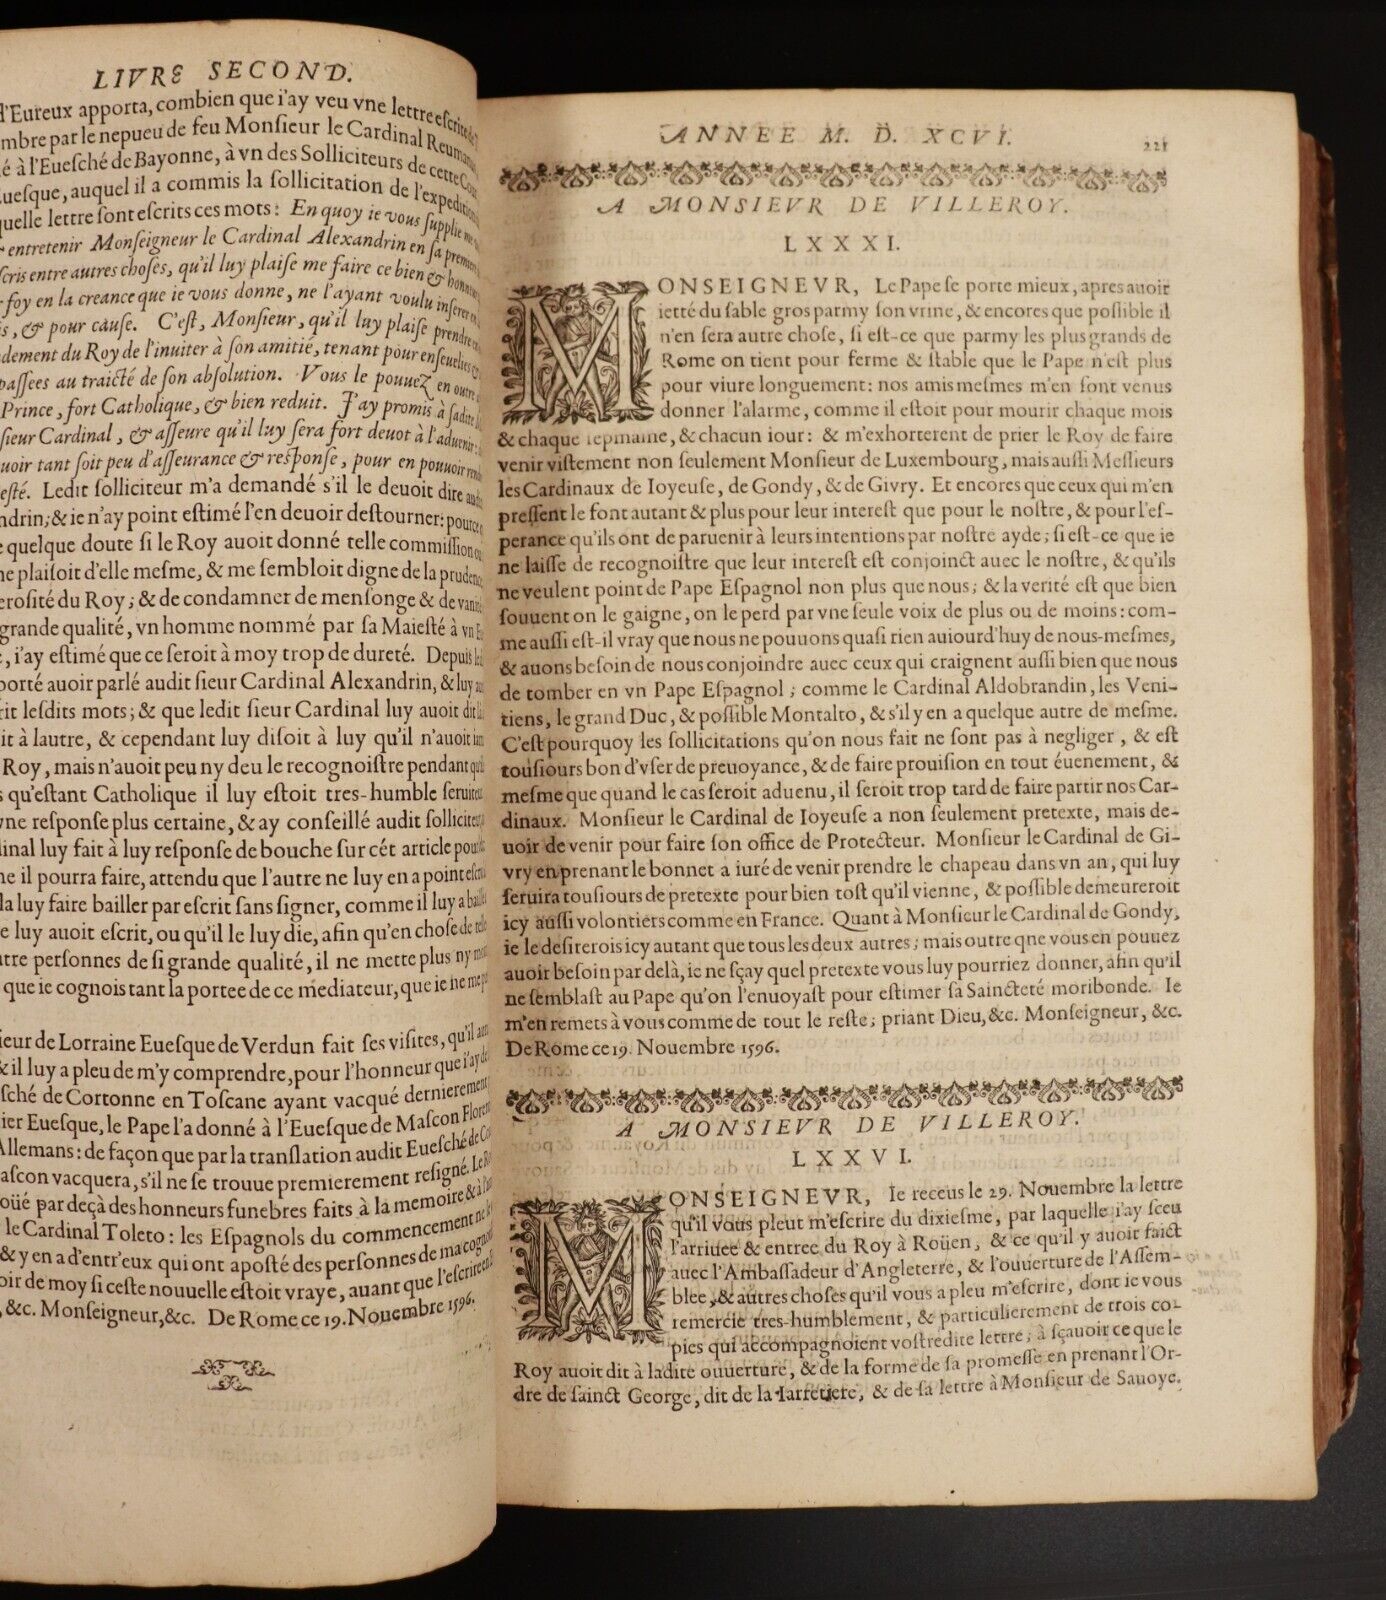 LIVRE SECOND.
d'Eureux apporta, combien que i'ay veu vne lettre eſcrite
mbre par le nepueu de feu Monſieur le Cardinal
é à l'Eueſché de Bayonne, à vn des Solliciteurs de cette
Eueſque, auquel il a commis la ſollicitation de l'expedition
quelle lettre ſont eſcrits ces mots: En quoy ie vous ſupplie
entretenir Monſeigneur le Cardinal Alexandrin en ſa
ſcris entre autres choſes, qu'il luy plaiſe me faire ce bien &
foy en la creance que ie vous donne, ne l'ayant voulu inſerer
s, & pour cauſe. C'eſt, Monſieur, qu'il luy plaiſe prendre
dement du Roy de l'inuiter à ſon amitié, tenant pour enſeuelies
paſſees au traicté de ſon abſolution. Vous le pouuez en outre
Prince, fort Catholique, & bien reduit. J'ay promis à ſadite
ſieur Cardinal, & aſſeure qu'il luy ſera fort deuot à l'aduenir:
uoir tant ſoit peu d'aſſeurance & reſponſe, pour en pouuoir
eſté. Ledit ſolliciteur m'a demandé s'il le deuoit dire
ndrin; & ie n'ay point eſtimé l'en deuoir deſtourner:
e quelque doute ſi le Roy auoit donné telle commiſſion
ne plaiſoit d'elle meſme, & me ſembloit digne de la
eroſité du Roy; & de condamner de menſonge & de
grande qualité, vn homme nommé par ſa Maieſté à vn
, i'ay eſtimé que ce ſeroit à moy trop de dureté. Depuis
porté auoir parlé audit ſieur Cardinal Alexandrin, & luy
rit leſdits mots; & que ledit ſieur Cardinal luy auoit dit
it à lautre, & cependant luy diſoit à luy qu'il n'auoit
Roy, mais n'auoit peu ny deu le recognoiſtre pendant
s qu'eſtant Catholique il luy eſtoit tres-humble
vne reſponſe plus certaine, & ay conſeillé audit
dinal luy fait à luy reſponſe de bouche ſur cét article
me il pourra faire, attendu que l'autre ne luy en a point
la luy faire bailler par eſcrit ſans ſigner, comme il luy a
e luy auoit eſcrit, ou qu'il le luy die, afin qu'en choſe de telle
utre perſonnes de ſi grande qualité, il ne mette plus ny
que ie cognois tant la portee de ce mediateur, que ie ne me
ieur de Lorraine Eueſque de Verdun fait ſes viſites, qu'il
& il luy a pleu de m'y comprendre, pour l'honneur que i'ay
ſché de Cortonne en Toſcane ayant vacqué dernierement
ier Eueſque, le Pape l'a donné à l'Eueſque de Maſcon
Allemans: de façon que par la translation audit Eueſché de
aſcon vacquera, s'il ne ſe trouue premierement reſigné.
oüé par deçà des honneurs funebres faits à la memoire &
le Cardinal Toleto: les Eſpagnols du commencement
& y en a d'entr'eux qui ont apoſté des perſonnes de
oir de moy ſi ceſte nouuelle eſtoit vraye, auant que l'eſcrire
, &c. Monſeigneur, &c. De Rome ce 19. Nouembre 1596.
ANNEE M. D. XCVI. 221
A MONSIEVR DE VILLEROY.
LXXXI.
MONSEIGNEVR, Le Pape ſe porte mieux, apres auoir
ietté du ſable gros parmy ſon vrine, & encores que poſſible il
n'en ſera autre choſe, ſi est-ce que parmy les plus grands de
Rome on tient pour ferme & ſtable que le Pape n'eſt plus
pour viure longuement: nos amis meſmes m'en ſont venus
donner l'alarme, comme il eſtoit pour mourir chaque mois
& chaque ſepmaine, & chacun iour: & m'exhorterent de prier le Roy de faire
venir viſtement non ſeulement Monſieur de Luxembourg, mais auſſi Meſſieurs
les Cardinaux de Ioyeuſe, de Gondy, & de Givry. Et encores que ceux qui m'en
preſſent le font autant & plus pour leur intereſt que pour le noſtre, & pour l'eſ-
perance qu'ils ont de paruenir à leurs intentions par noſtre ayde; ſi eſt-ce que ie
ne laiſſe de recognoiſtre que leur intereſt eſt conjoinct auec le noſtre, & qu'ils
ne veulent point de Pape Eſpagnol non plus que nous; & la verité eſt que bien
ſouuent on le gaigne, on le perd par vne ſeule voix de plus ou de moins: com-
me auſſi eſt-il vray que nous ne pouuons quaſi rien auiourd'huy de nous-meſmes,
& auons beſoin de nous conjoindre auec ceux qui craignent auſſi bien que nous
de tomber en vn Pape Eſpagnol; comme le Cardinal Aldobrandin, les Veni-
tiens, le grand Duc, & poſſible Montalto, & s'il y en a quelque autre de meſme.
C'eſt pourquoy les ſollicitations qu'on nous fait ne ſont pas à negliger, & eſt
touſiours bon d'vſer de preuoyance, & de faire prouiſion en tout éuenement, &
meſme que quand le cas ſeroit aduenu, il ſeroit trop tard de faire partir nos Car-
dinaux. Monſieur le Cardinal de Ioyeuſe a non ſeulement pretexte, mais de-
uoir de venir pour faire ſon office de Protecteur. Monſieur le Cardinal de Gi-
vry en prenant le bonnet a iuré de venir prendre le chapeau dans vn an, qui luy
ſeruira touſiours de pretexte pour bien toſt qu'il vienne, & poſſible demeureroit
icy auſſi volontiers comme en France. Quant à Monſieur le Cardinal de Gondy,
ie le deſirerois icy autant que tous les deux autres; mais outre qne vous en pouuez
auoir beſoin par delà, ie ne ſçay quel pretexte vous luy pourriez donner, afin qu'il
ne ſemblaſt au Pape qu'on l'enuoyaſt pour eſtimer ſa Saincteté moribonde. Ie
m'en remets à vous comme de tout le reſte; priant Dieu, &c. Monſeigneur, &c.
De Rome ce 19. Nouembre 1596.
A MONSIEVR DE VILLEROY.
LXXVI.
MONSEIGNEVR, Ie receus le 29. Nouembre la lettre
qu'il vous pleut m'eſcrire du dixieſme, par laquelle i'ay ſceu
l'arriuee & entree du Roy à Roüen, & ce qu'il y auoit faict
auec l'Ambaſſadeur d'Angleterre, & l'ouuerture de l'Aſſem-
blee, & autres choſes qu'il vous a pleu m'eſcrire, dont ie vous
remercie tres-humblement, & particulierement de trois co-
pies qui accompagnoient voſtredite lettre; à ſçauoir ce que le
Roy auoit dit à ladite ouuerture, & de la forme de ſa promeſſe en prenant l'Or-
dre de ſainct George, dit de la Iarretiere, & de ſa lettre à Monſieur de Sauoye.